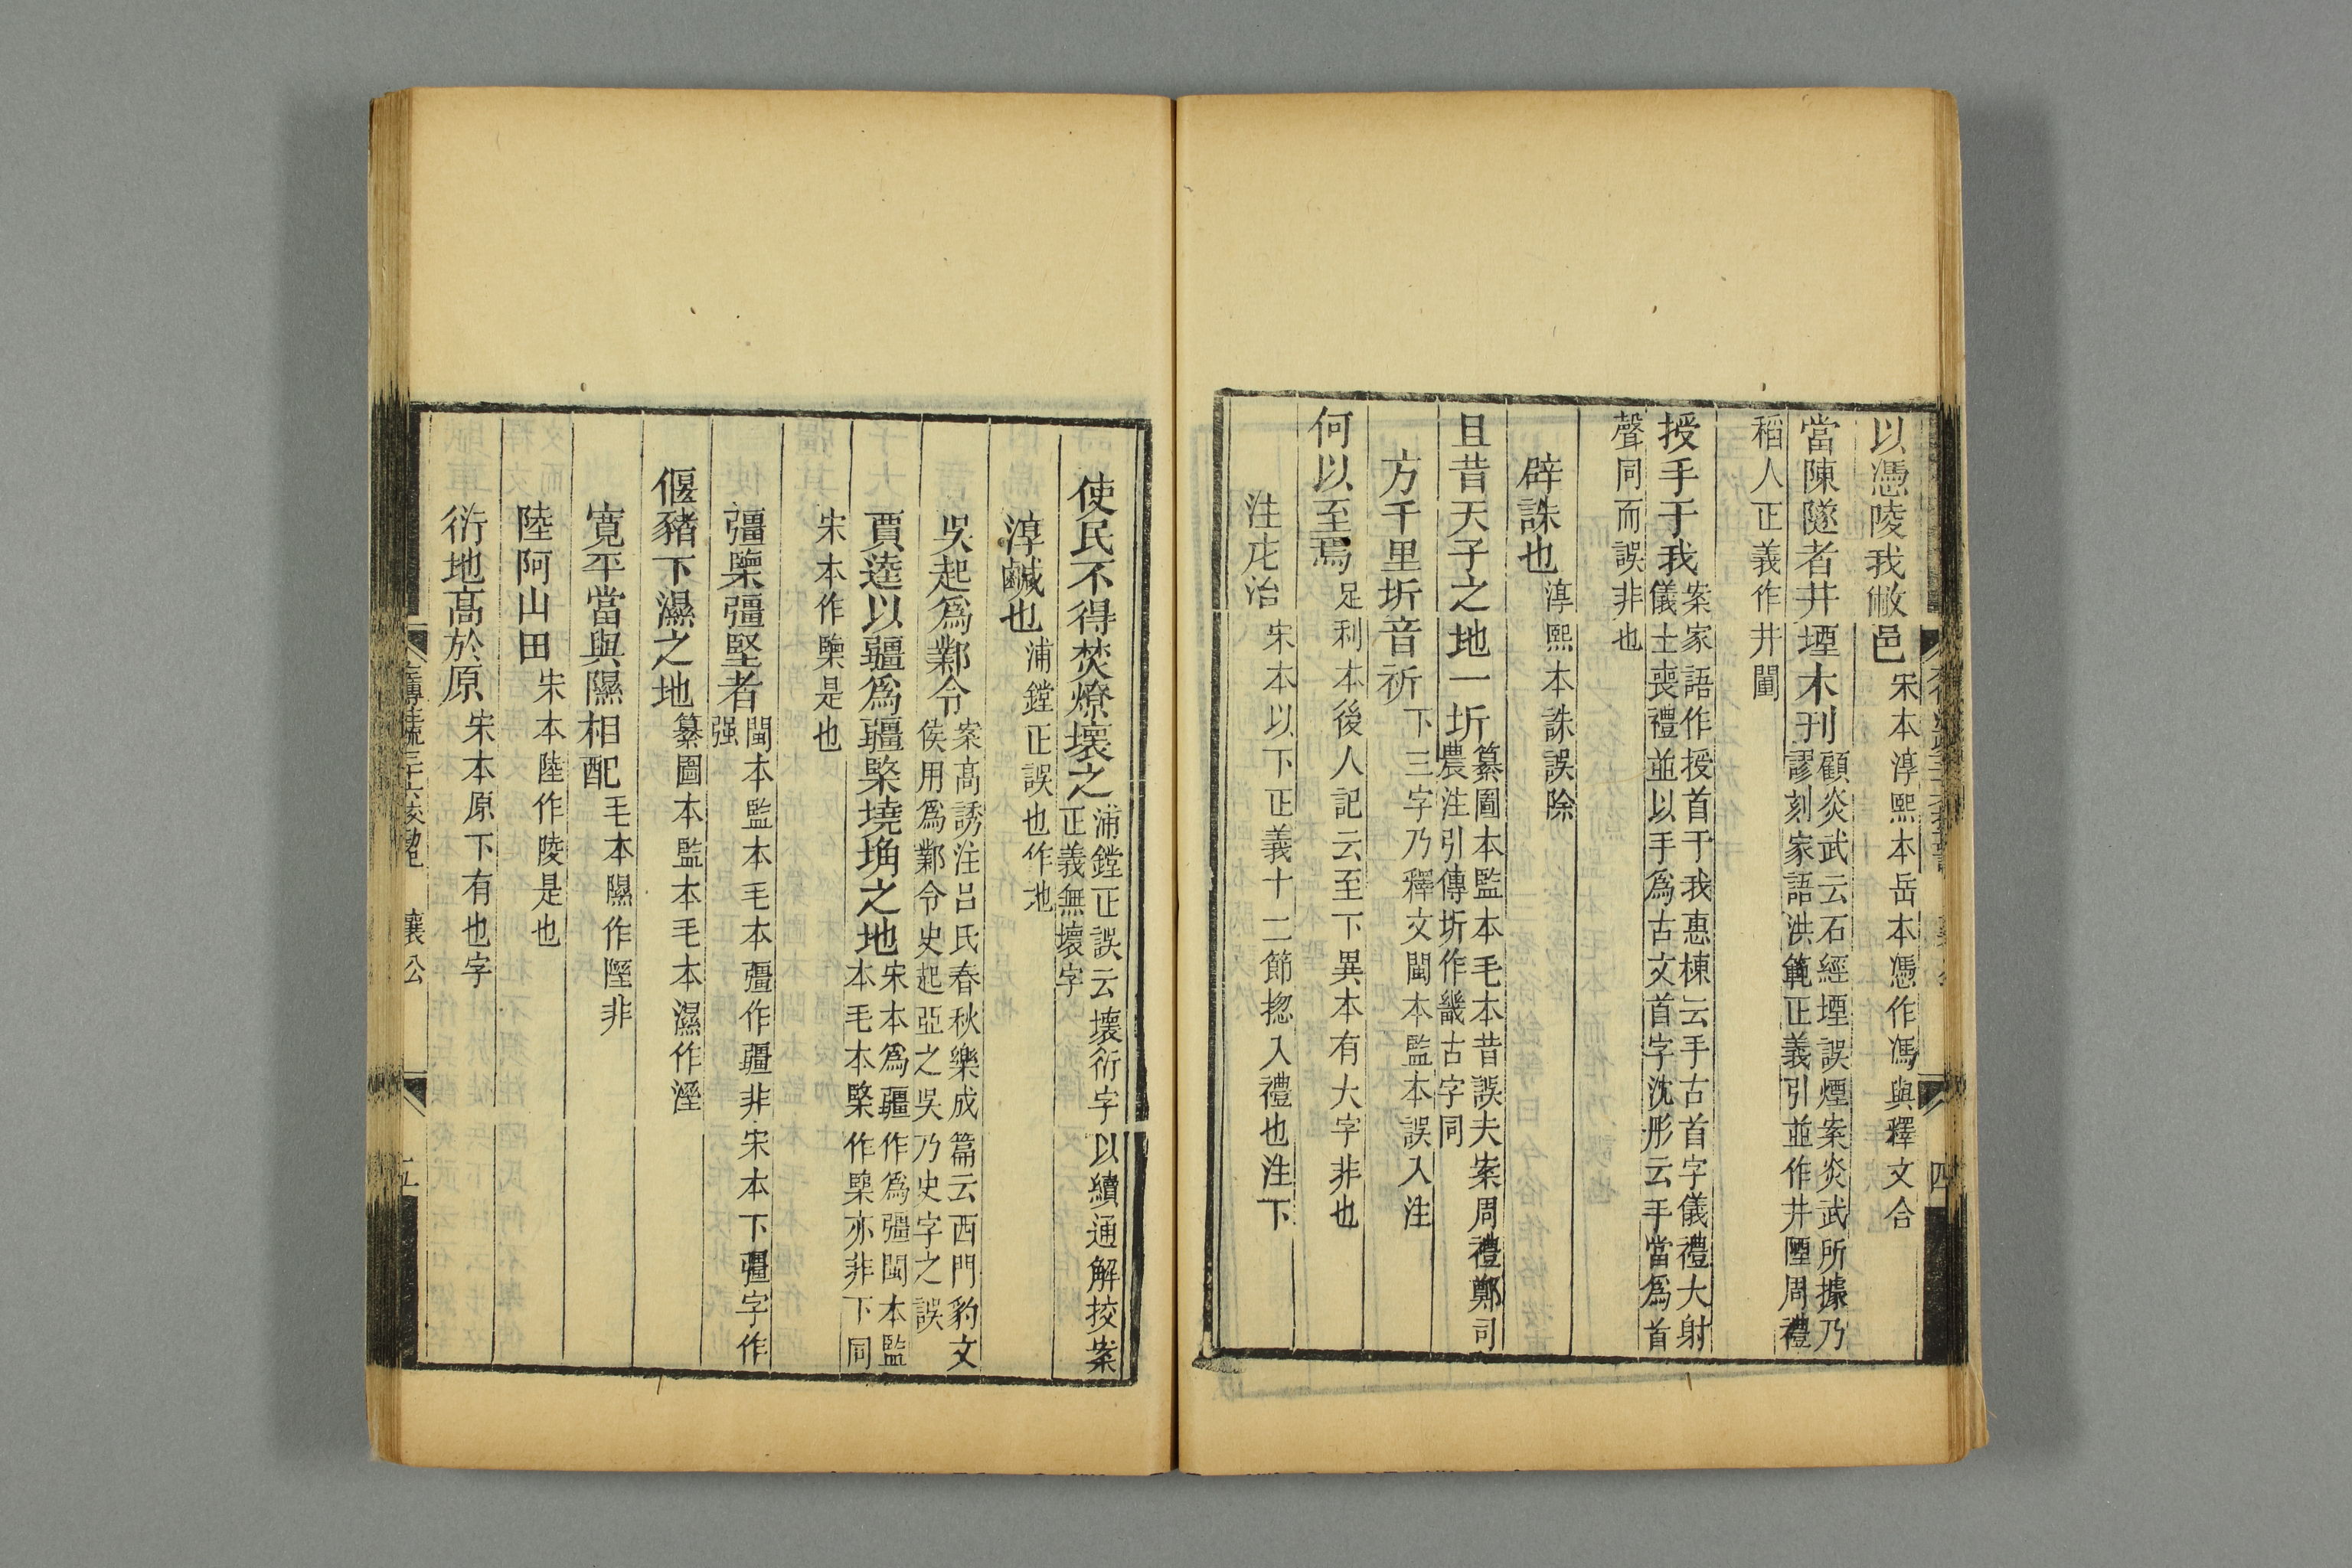 以憑陵我敝邑宋本淳熙本岳本憑作馮與釋文合
當陳隧者井堙木刊顧炎武云石經堙誤煙案炎武所據乃謬刻家語洪範正義引並作井陻周禮
稻人正義作井闉
授手于我案家語作授首于我惠棟云手古首字儀禮大射儀士喪禮並以手爲古文首字沈彤云手當爲首
聲同而誤非也
辟誅也淳熙本誅誤除
且昔天子之地一圻纂圖本監本毛本昔誤夫案周禮鄭司農注引傳圻作畿古字同
方千里圻音祈下三字乃釋文閩本監本誤入注
何以至焉足利本後人記云至下異本有大字非也
注庀治宋本以下正義十二節揔入禮也注下
使民不得焚燎壞之浦鏜正誤云壞衍字以續通解挍案正義無壞字
淳鹹也浦鏜正誤也作地
吳起爲鄴令案高誘注呂氏春秋樂成篇云西門豹文侯用爲鄴令史起亞之吳乃史字之誤
賈逵以疆爲疆㯺墝埆之地宋本爲疆作爲彊閩本監本毛本㯺作檃亦非下同
宋本作檃是也
彊檃彊堅者閩本監本毛本彊作疆非宋本下彊字作强
偃豬下濕之地纂圖本監本毛本濕作溼
寛平當與隰相配毛本隰作陘非
陸阿山田宋本陸作陵是也
衍地高於原宋本原下有也字
襄公
五
四